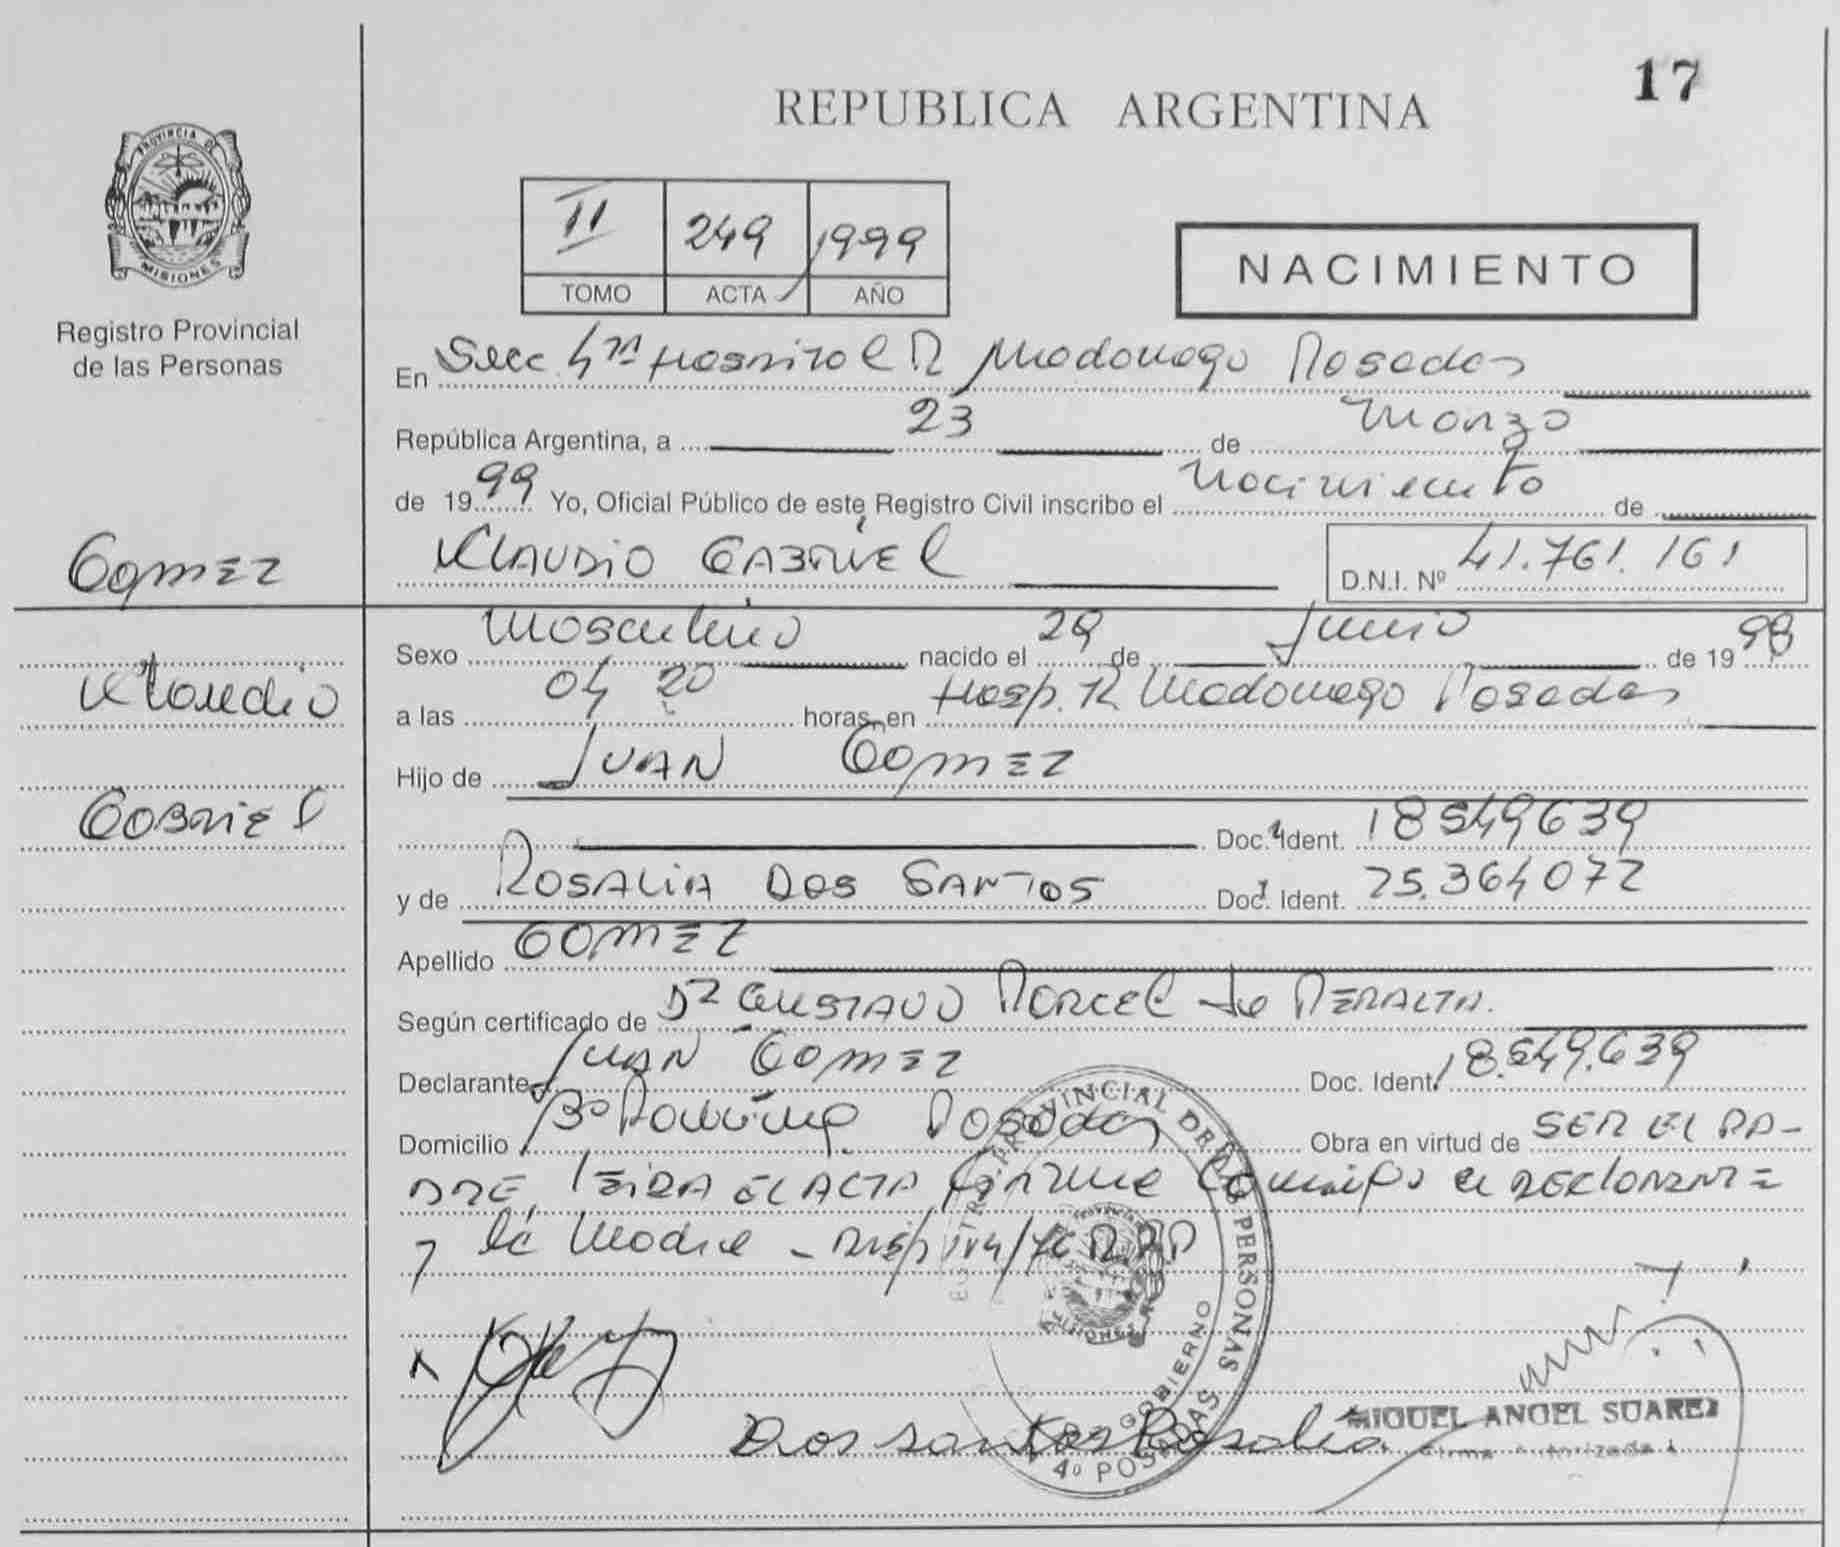 17
REPUBLICA ARGENTINA
PROVINCIA DE
MISIONES
Registro Provincial
de las Personas
II 249 1999
TOMO ACTA AÑO
NACIMIENTO
En Secc 4ta Hospital R Madariaga Posadas
República Argentina, a 23 de Marzo
de 1999 Yo, Oficial Público de este Registro Civil inscribo el Nacimiento de
KLAUDIO GABRIEL
D.N.I. Nº 41.761.161
Gomez
Klaudio
Gabriel
Sexo Masculino nacido el 29 de Junio de 1998
a las 04 20 horas en Hosp. R Madariaga Posadas
Hijo de JUAN GOMEZ
Doc. Ident. 18549639
y de ROSALIA DOS SANTOS Doc. Ident. 25.364072
Apellido GOMEZ
Según certificado de Dr GUSTAVO MARCEL PERALTA.
Declarante JUAN GOMEZ Doc. Ident. 18.549.639
Domicilio Bº Posadas Obra en virtud de SER EL PA-
DRE, LEIDA EL ACTA FIRMA CONMIGO el DECLARANTE
y la Madre - Disp
REGISTRO PROVINCIAL DE LAS PERSONAS
GOBIERNO
4º POSADAS
Dos santos Rosalia
MIGUEL ANGEL SUAREZ
Firma Autorizada